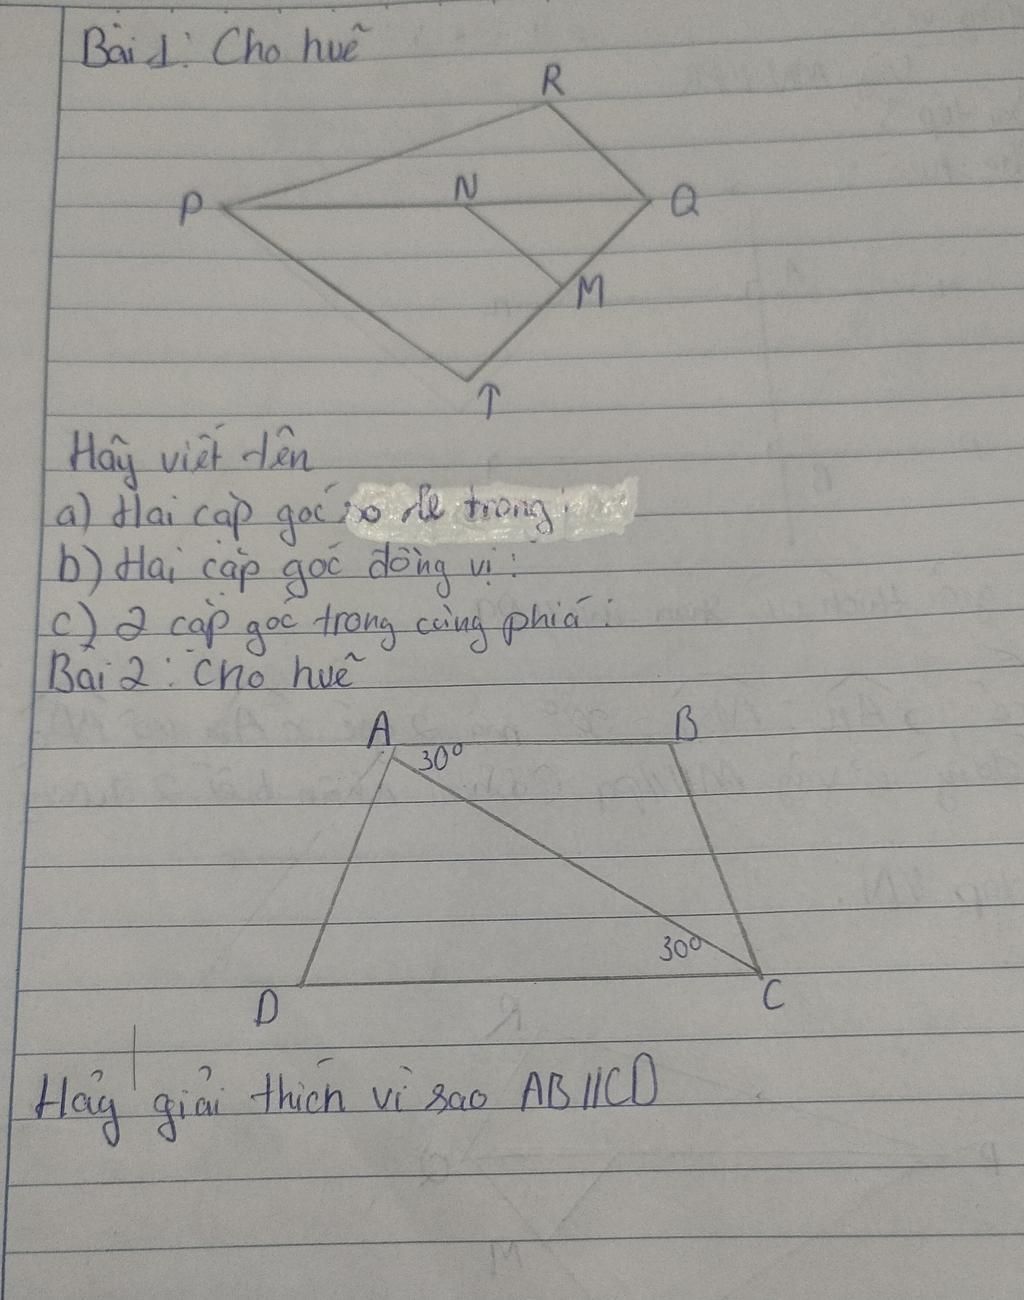 Bài 1: Cho huẽ
R
P
N
Q
M
T
Hãy viết tên
a) Hai cặp góc so le trong:
b) Hai cặp góc đồng vị:
c) 2 cặp góc trong cùng phiá:
Bài 2: Cho huẽ
A
B
30°
30°
D
C
Hãy giải thích vì sao AB//CD